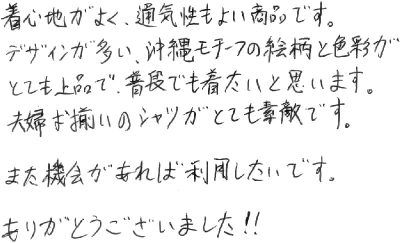 着心地がよく、通気性もよい商品です。
デザインが多い、沖縄モチーフの絵柄と色彩が
とても上品で、普段でも着たいと思います。
夫婦お揃いのシャツがとても素敵です。
また機会があれば利用したいです。
ありがとうございました!!